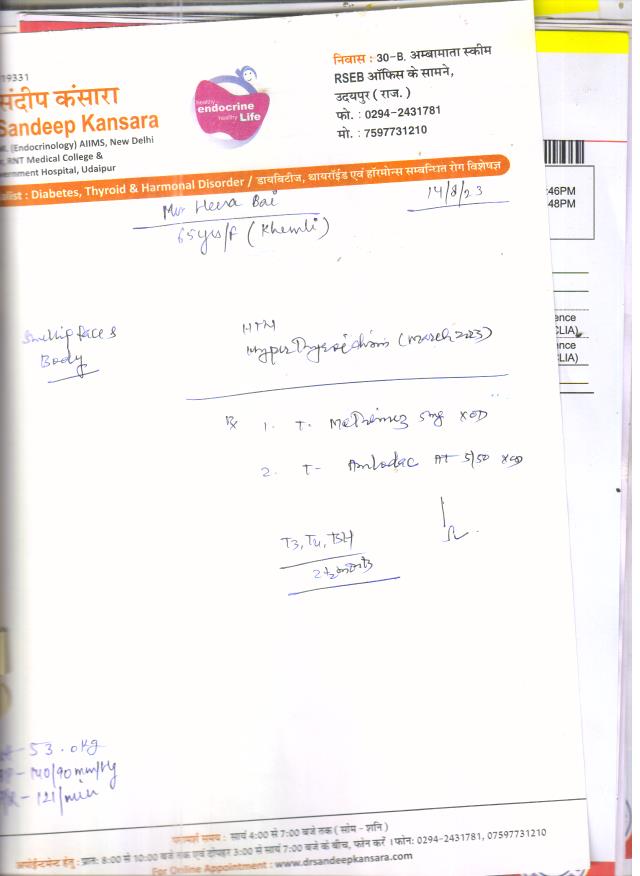 19331
संदीप कंसारा
Sandeep Kansara
(Endocrinology) AIIMS, New Delhi
RNT Medical College &
ernment Hospital, Udaipur
healthy
endocrine
healthy Life
निवास : 30-B, अम्बामाता स्कीम
RSEB ऑफिस के सामने,
उदयपुर ( राज. )
फो. : 0294-2431781
मो. : 7597731210
alist : Diabetes, Thyroid & Harmonal Disorder / डायबिटीज, थायरॉईड एवं हॉरमोन्स सम्बन्धित रोग विशेषज्ञ
:46PM
:48PM
ence
CLIA)
ence
CLIA)
Heera Bai
14/8/23
65yrs/F ( Khemli )
face &
Body
HTN
Hyperthyroidism (March 2023)
Rx 1. T. Methimez 5mg X OD
2. T- Amlodac AT 5/50 X OD
T3, T4, TSH
53.0kg
140/90 mm/Hg
121/min
परामर्श समय : सायं 4:00 से 7:00 बजे तक ( सोम - शनि )
अपॉईन्टमेन्ट हेतु : प्रातः 8:00 से 10:00 बजे तक एवं दोपहर 3:00 से सायं 7:00 बजे के बीच, फोन करें । फोन: 0294-2431781, 07597731210
For Online Appointment : www.drsandeepkansara.com